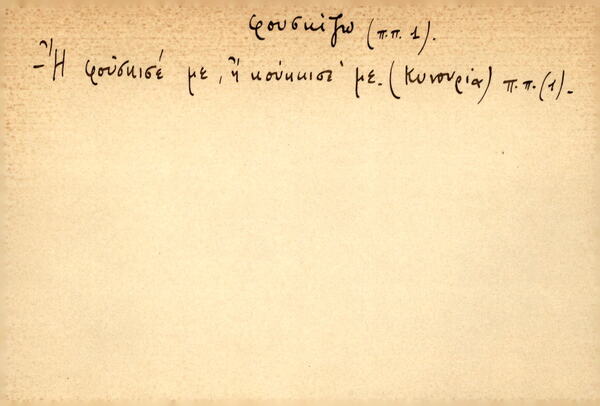 φουσκίζω (π.π. 1).
– Ἢ φούσκισέ με, ἢ κούκκισέ με. (Κυνουρία) π.π. (1).